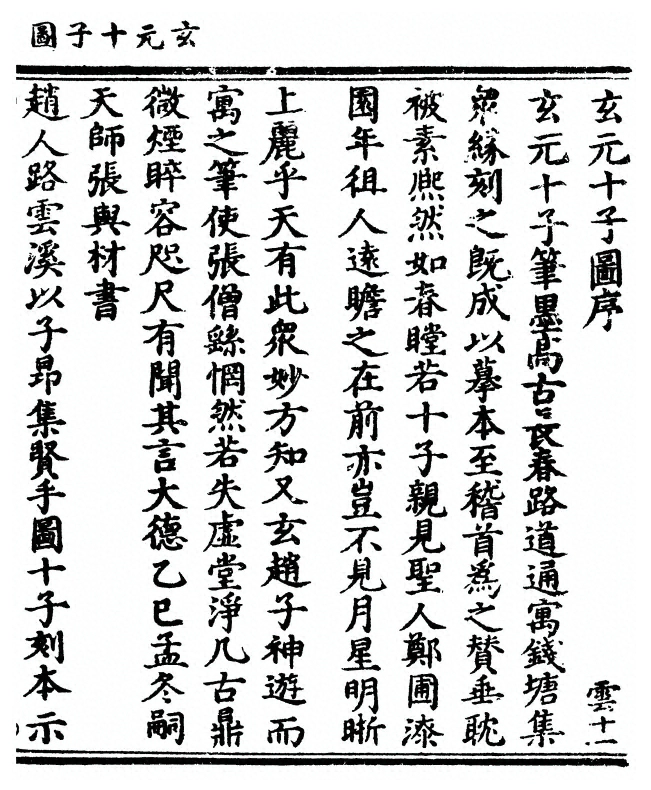 玄元十子圖
玄元十子圖序
雲十一
玄元十子筆墨高古長春路道通寓錢塘集
衆緣刻之既成以摹本至稽首爲之賛垂耽
被素熈然如春瞠若十子親見聖人鄭圃漆
園年徂人遠瞻之在前亦豈不見月星明晰
上麗乎天有此衆妙方知又玄趙子神遊而
寓之筆使張僧繇惘然若失虛堂淨几古鼎
微煙睟容咫尺有聞其言大德乙巳孟冬嗣
天師張與材書
趙人路雲溪以子昂集賢手圖十子刻本示